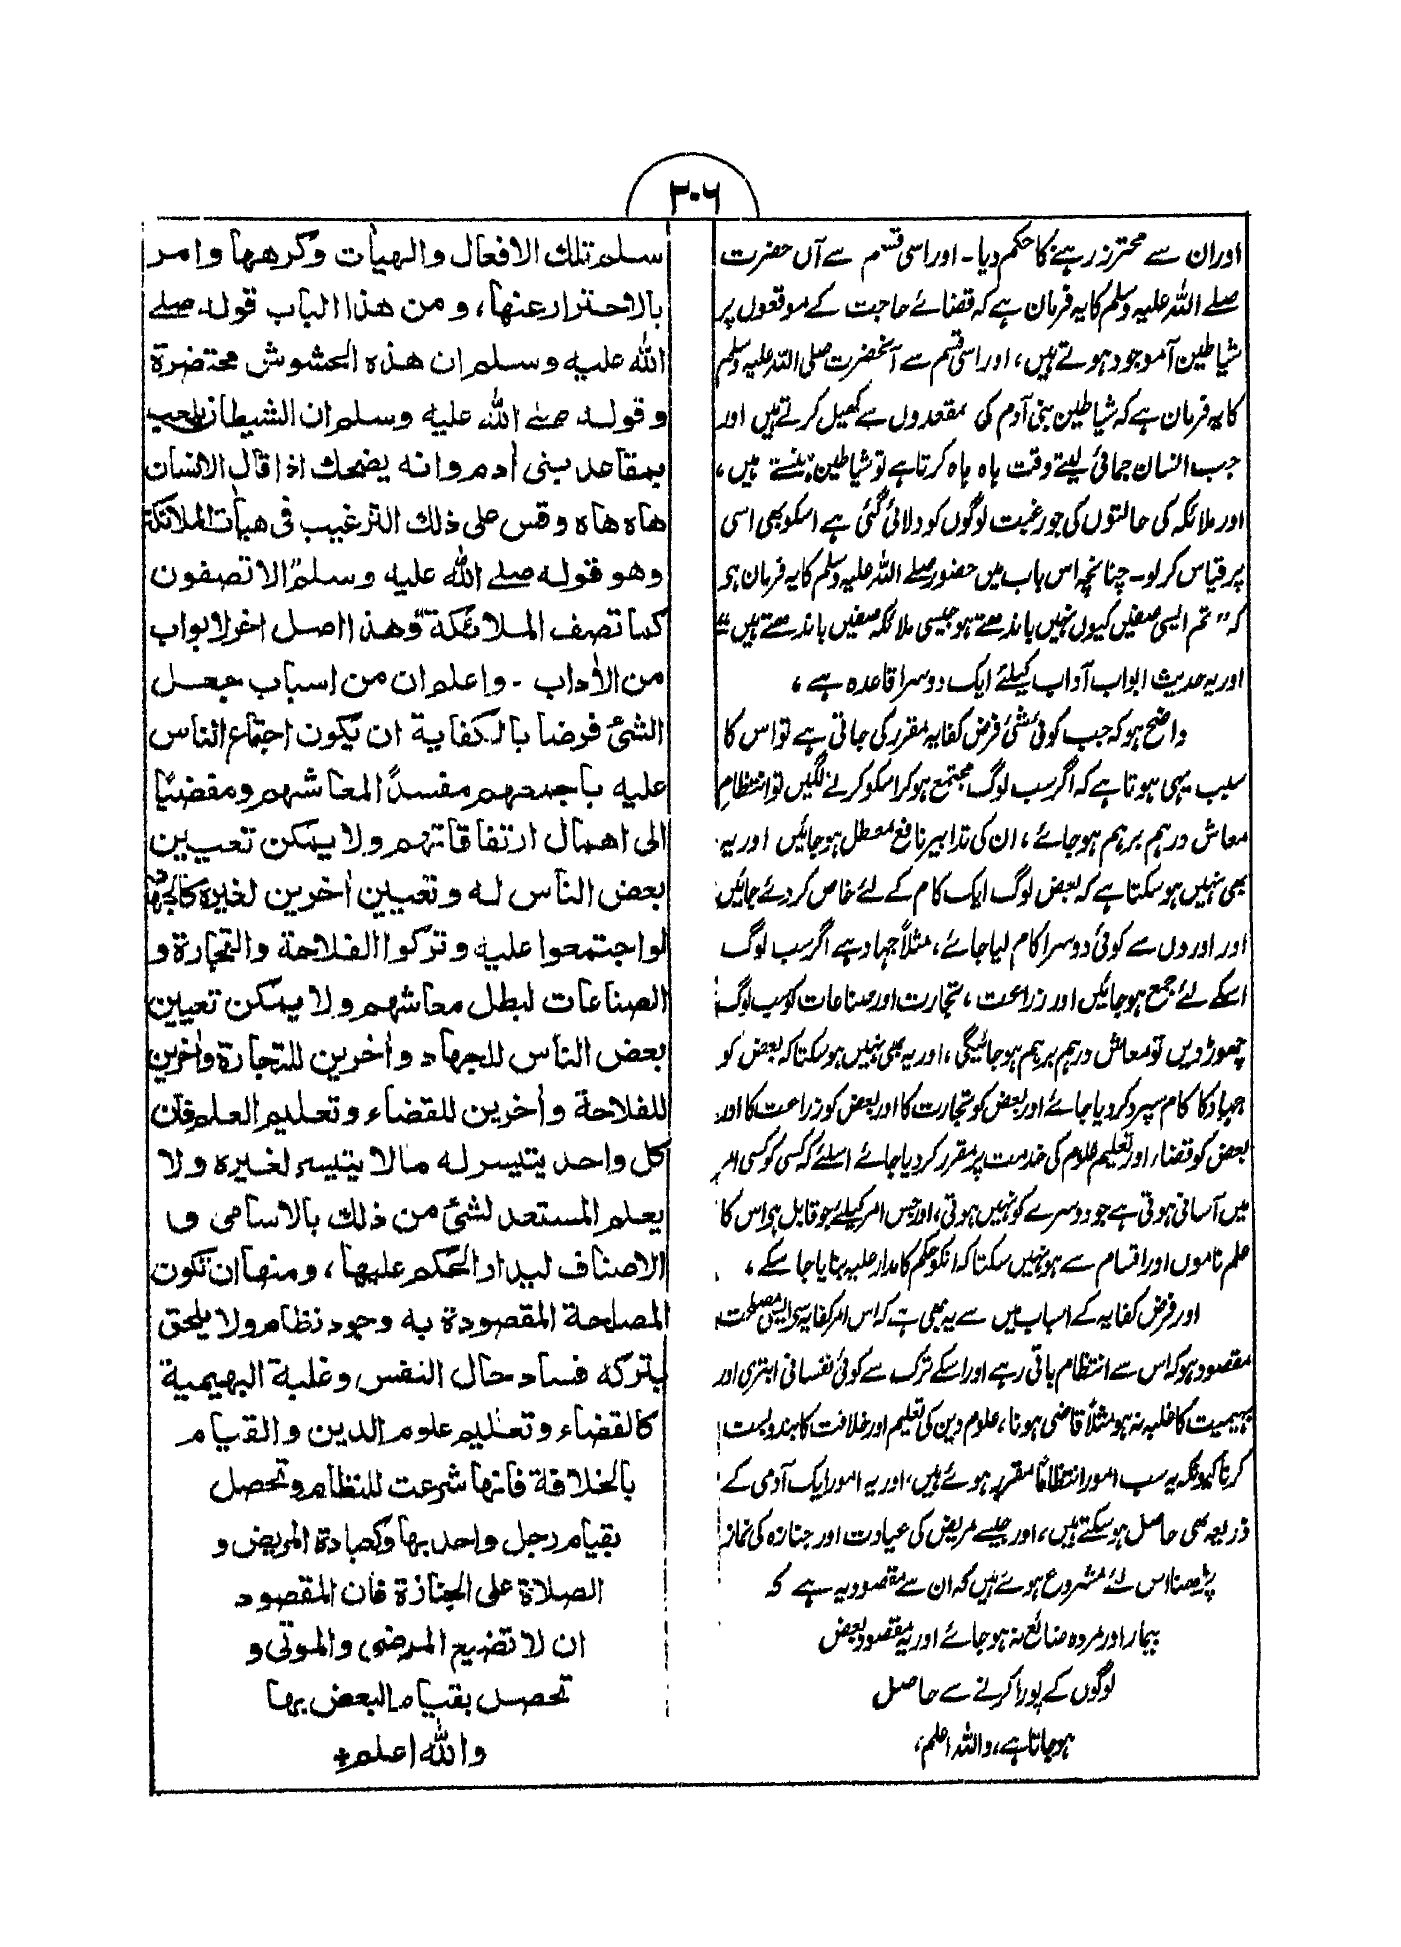 ٣٠٦
اور ان سے محترز رہنے کا حکم دیا۔ اور اسی قسم سے آں حضرت
صلے اللہ علیہ وسلم کا یہ فرمان ہے کہ قضائے حاجت کے موقعوں پر
شیاطین آموجود ہوتے ہیں، اور اسی قسم سے آنحضرت صلی اللہ علیہ وسلم
کا یہ فرمان ہے کہ شیاطین بنی آدم کی مقعدوں سے کھیل کرتے ہیں اور
جب انسان جمائی لیتے وقت ہاہ ہاہ کرتا ہے تو شیاطین ہنستے ہیں،
اور ملائکہ کی حالتوں کی جو رغبت لوگوں کو دلائی گئی ہے اسکو بھی اسی
پر قیاس کرلو۔ چنانچہ اس باب میں حضور صلے اللہ علیہ وسلم کا یہ فرمان ہے
کہ "تم ایسی صفیں کیوں نہیں باندھتے ہو جیسی ملائکہ صفیں باندھتے ہیں"
اور یہ حدیث ابواب آداب کیلئے ایک دوسرا قاعدہ ہے،
واضح ہو کہ جب کوئی شئی فرض کفایہ مقرر کی جاتی ہے تو اس کا
سبب یہی ہوتا ہے کہ اگر سب لوگ مجتمع ہوکر اسکو کرنے لگیں تو انتظام
معاش درہم برہم ہوجائے، ان کی تدابیر نافع معطل ہوجائیں اور یہ
بھی نہیں ہوسکتا ہے کہ بعض لوگ ایک کام کے لئے خاص کردئے جائیں
اور اوروں سے کوئی دوسرا کام لیا جائے، مثلاً جہاد ہے اگر سب لوگ
اسکے لئے جمع ہوجائیں اور زراعت، تجارت اور صناعات کو سب لوگ
چھوڑ دیں تو معاش درہم برہم ہوجائیگی، اور یہ بھی نہیں ہوسکتا کہ بعض کو
جہاد کا کام سپرد کردیا جائے اور بعض کو تجارت کا اور بعض کو زراعت کا اور
بعض کو قضاء اور تعلیم علوم کی خدمت پر مقرر کردیا جائے اسلئے کہ کسی کو کسی امر
میں آسانی ہوتی ہے جو دوسرے کو نہیں ہوتی، اور جس امر کیلئے جو قابل ہو اس کا
علم ناموں اور اقسام سے ہو نہیں سکتا کہ انکو حکم کا مدار علیہ بنایا جاسکے،
اور فرض کفایہ کے اسباب میں سے یہ بھی ہے کہ اس امر کفایہ سے ایسی مصلحت
مقصود ہو کہ اس سے انتظام باقی رہے اور اسکے ترک سے کوئی نفسانی ابتری اور
بہیمیت کا غلبہ نہ ہو مثلاً قاضی ہونا، علوم دین کی تعلیم اور خلافت کا بندوبست
کرنا کیونکہ یہ سب امور انتظاماً مقرر ہوئے ہیں، اور یہ امور ایک آدمی کے
ذریعہ بھی حاصل ہوسکتے ہیں، اور جیسے مریض کی عیادت اور جنازہ کی نماز
پڑھنا اس لئے مشروع ہوئے ہیں کہ ان سے مقصود یہ ہے کہ
بیمار اور مردہ ضائع نہ ہوجائے اور یہ مقصود بعض
لوگوں کے پورا کرنے سے حاصل
ہوجاتا ہے، واللہ اعلم،
سلم تلك الافعال والهيأت وكرهها وامر
بالاحتراز عنها، ومن هذا الباب قوله صلے
الله عليه وسلم ان هذه الحشوش محتضرة
وقوله صلے الله عليه وسلم ان الشيطان يلعب
بمقاعد بنى أدم وانه يضحك اذا قال الانسان
هاه هاه وقس على ذلك الترغيب فى هيأت الملائكة
وهو قوله صلے الله عليه وسلم "الا تصفون
كما تصف الملائكة" وهذا اصل اخر لابواب
من الأداب - واعلم ان من اسباب جعل
الشئ فرضا بالكفاية ان يكون اجتماع الناس
عليه باجمعهم مفسداً لمعاشهم ومفضيًا
الى اهمال ارتفاقاتهم ولا يمكن تعيين
بعض الناس له وتعيين أخرين لغيره كالجهاد
لو اجتمعوا عليه وتركوا الفلاحة والتجارة و
الصناعات لبطل معاشهم ولا يمكن تعيين
بعض الناس للجهاد وأخرين للتجارة وأخرين
للفلاحة وأخرين للقضاء وتعليم العلم فان
كل واحد يتيسر له مالا يتيسر لغيره ولا
يعلم المستعد لشئ من ذلك بالاسامى و
الاصناف ليدار الحكم عليها، ومنها ان تكون
المصلحة المقصودة به وجود نظام ولا يلحق
بتركه فساد حال النفس وغلبة البهيمية
كالقضاء وتعليم علوم الدين والقيام
بالخلافة فانها شرعت للنظام وتحصل
بقيام رجل واحد بها وكعيادة المريض و
الصلاة على الجنازة فان المقصود
ان لا تضيع المرضى والموتى و
تحصل بقيام البعض بها
والله اعلم